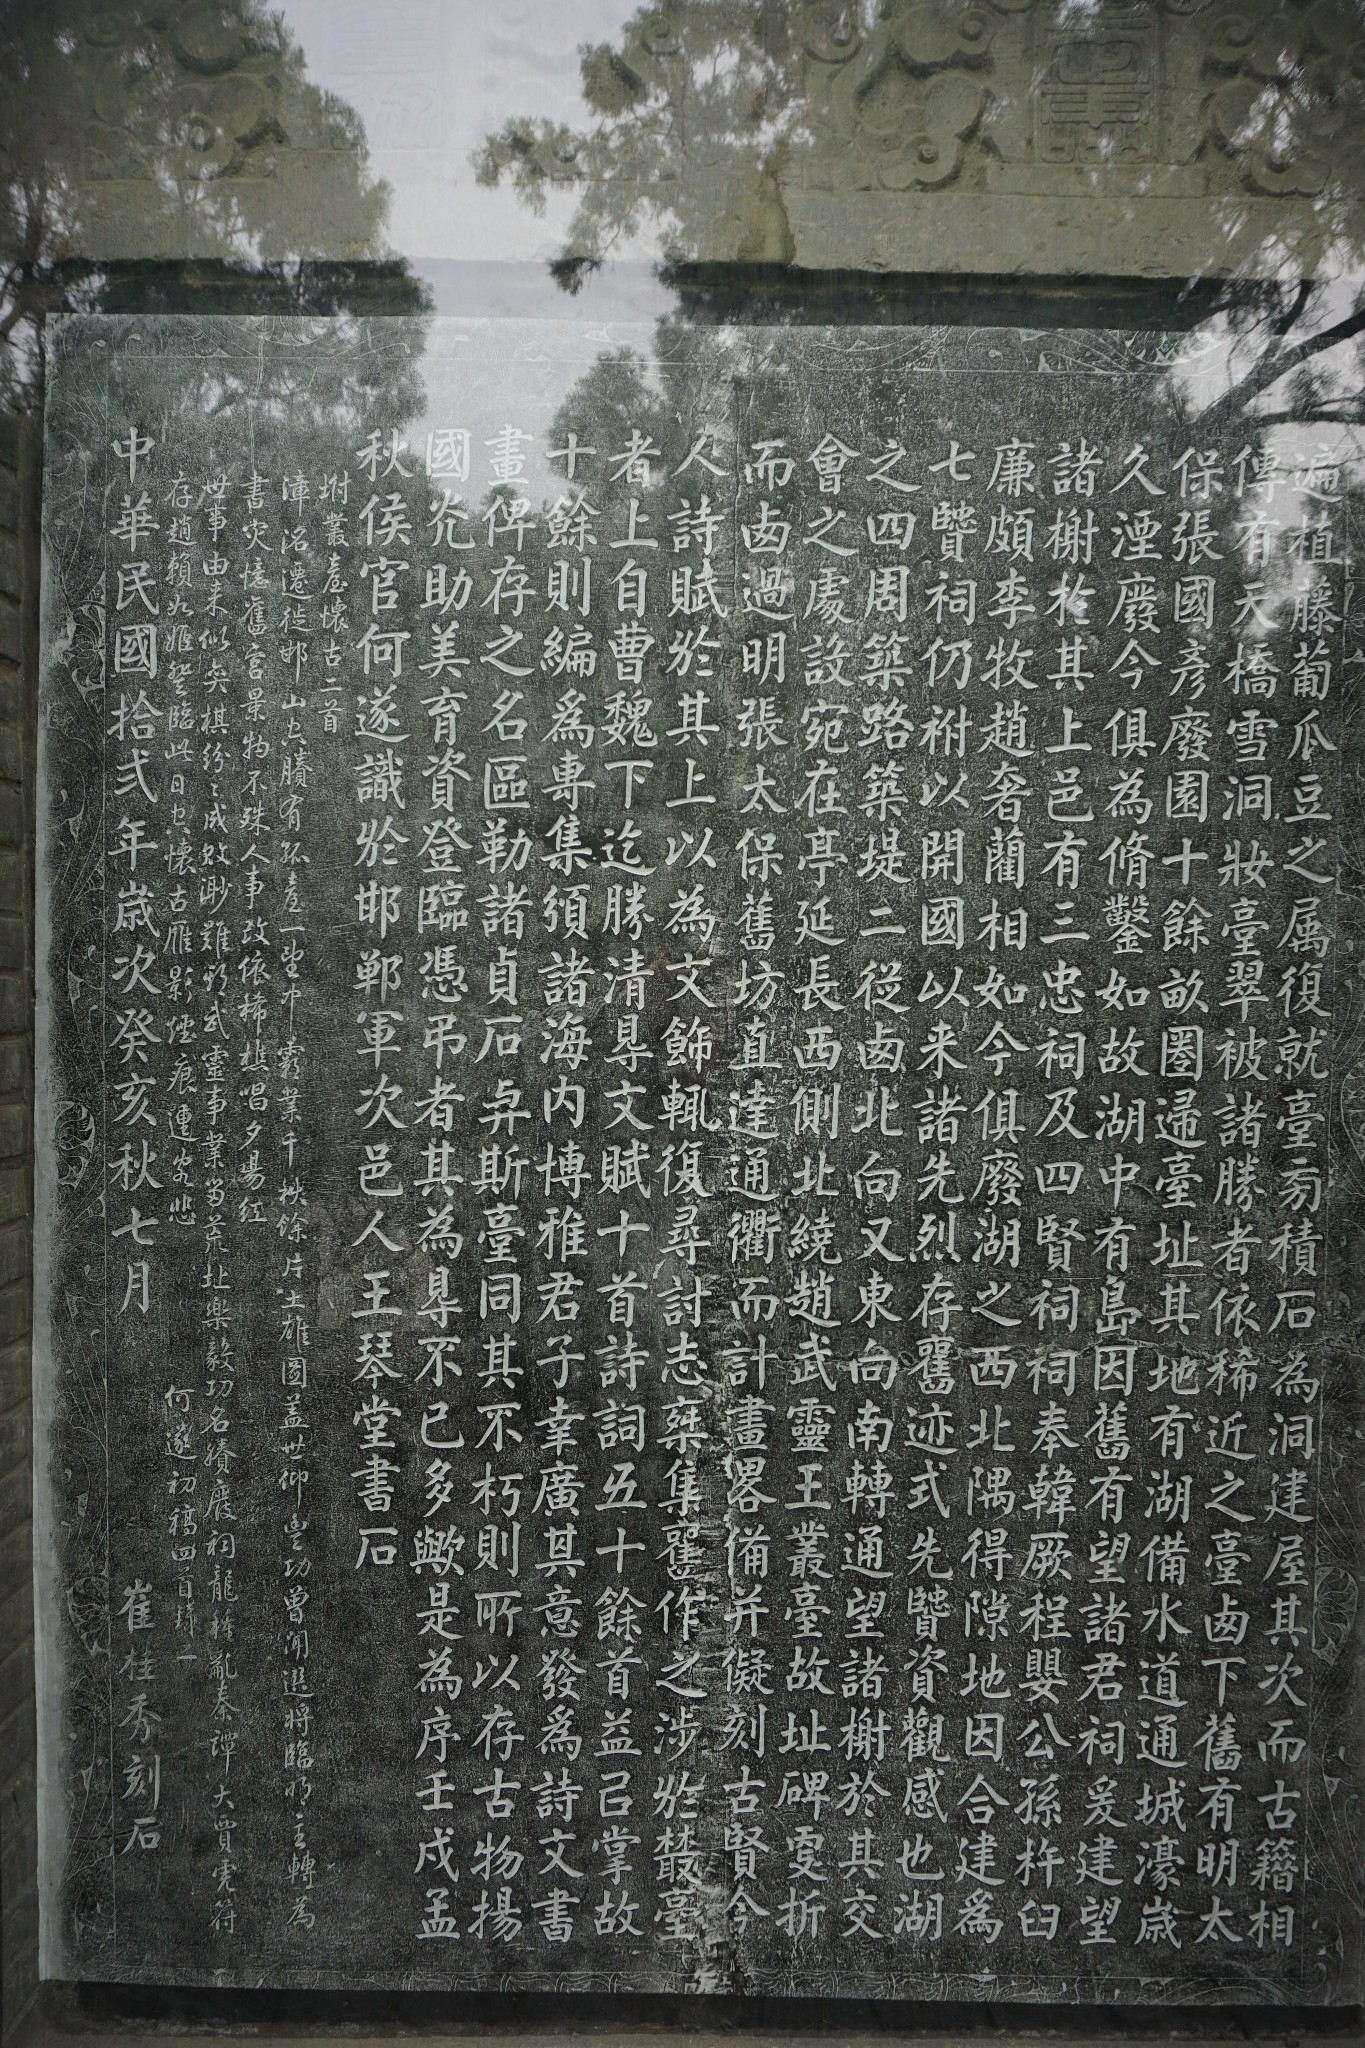 遍植藤葡瓜豆之属復就臺旁積石為洞建屋其次而古籍相
傳有天橋雪洞妝臺翠被諸勝者依稀近之臺卤下舊有明太
保張國彥廢園十餘畝圈歸臺址其地有湖備水道通城濠歲
久湮廢今俱為脩鑿如故湖中有島因舊有望諸君祠爰建望
諸榭於其上邑有三忠祠及四賢祠祠奉韓厥程嬰公孫杵臼
廉頗李牧趙奢藺相如今俱廢湖之西北隅得隙地因合建為
七賢祠仍祔以開國以来諸先烈存舊迹式先賢資觀感也湖
之四周築路築堤二從卤北向又東向南轉通望諸榭於其交
會之處設宛在亭延長西側北繞趙武靈王叢臺故址碑夏折
而卤過明張太保舊坊直達通衢而計畫畧備并儗刻古賢今
人詩賦於其上以為文飾輒復尋討志乘集舊作之涉於叢臺
者上自曹魏下迄勝清得文賦十首詩詞五十餘首益己掌故
十餘則編為專集須諸海内博雅君子幸廣其意發為詩文書
畫俾存之名區勒諸貞石与斯臺同其不朽則所以存古物揚
國光助美育資登臨憑弔者其為得不已多歟是為序壬戌孟
秋侯官何遂識於邯鄲軍次邑人王琴堂書石
坿叢臺懷古二首
漳洺遷徙邯山空賸有孤臺一望中霸業千秋餘片土雄圖蓋世仰豐功曾聞選將臨明主轉為
書灾憶舊宮景物不殊人事改依稀樵唱夕陽紅
世事由来似奕棋紛〻成敗渺難弔武靈事業留荒址樂毅功名賸廢祠龍種亂秦譚大賈虎符
存趙賴如姬登臨此日空懷古雁影煙痕運客悲
何遂初稿四首録二
中華民國拾弍年歲次癸亥秋七月 崔桂秀刻石